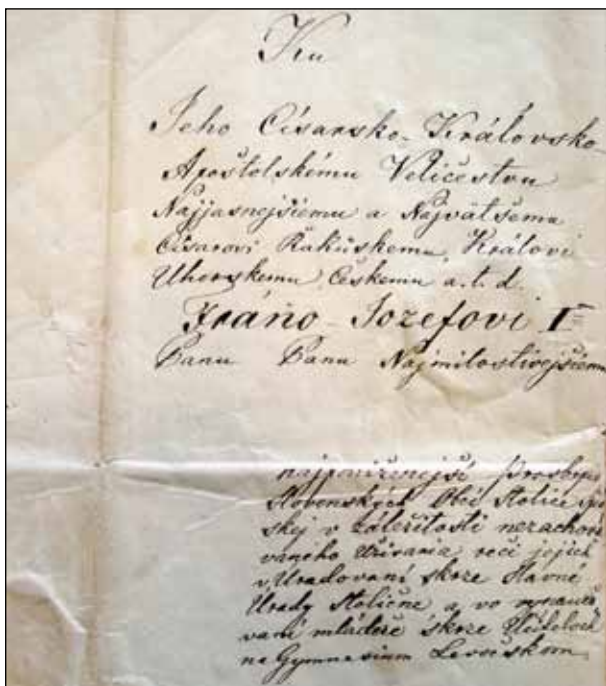 Ku
Jeho Císarsko-Královsko-
Apoštolskému Veličestvu
Najjasnejšiemu a Najvätšemu
Císarovi Rakúskemu, Královi
Uhorskemu, Českemu a.t.d.
Fráňo-Jozefovi I
Panu Panu Najmilostivejšiemu
najponiženejší Prosbopis
Slovenských Obcí Stolice
skej v záležitosti nezacho-
vaneho Užívania reči jejich
v Uradovaní skrze Hlavné
Urady Stoličné a vo vyučo-
vaní mládeže skrze Učitelov
na Gymnasium Levočskom.